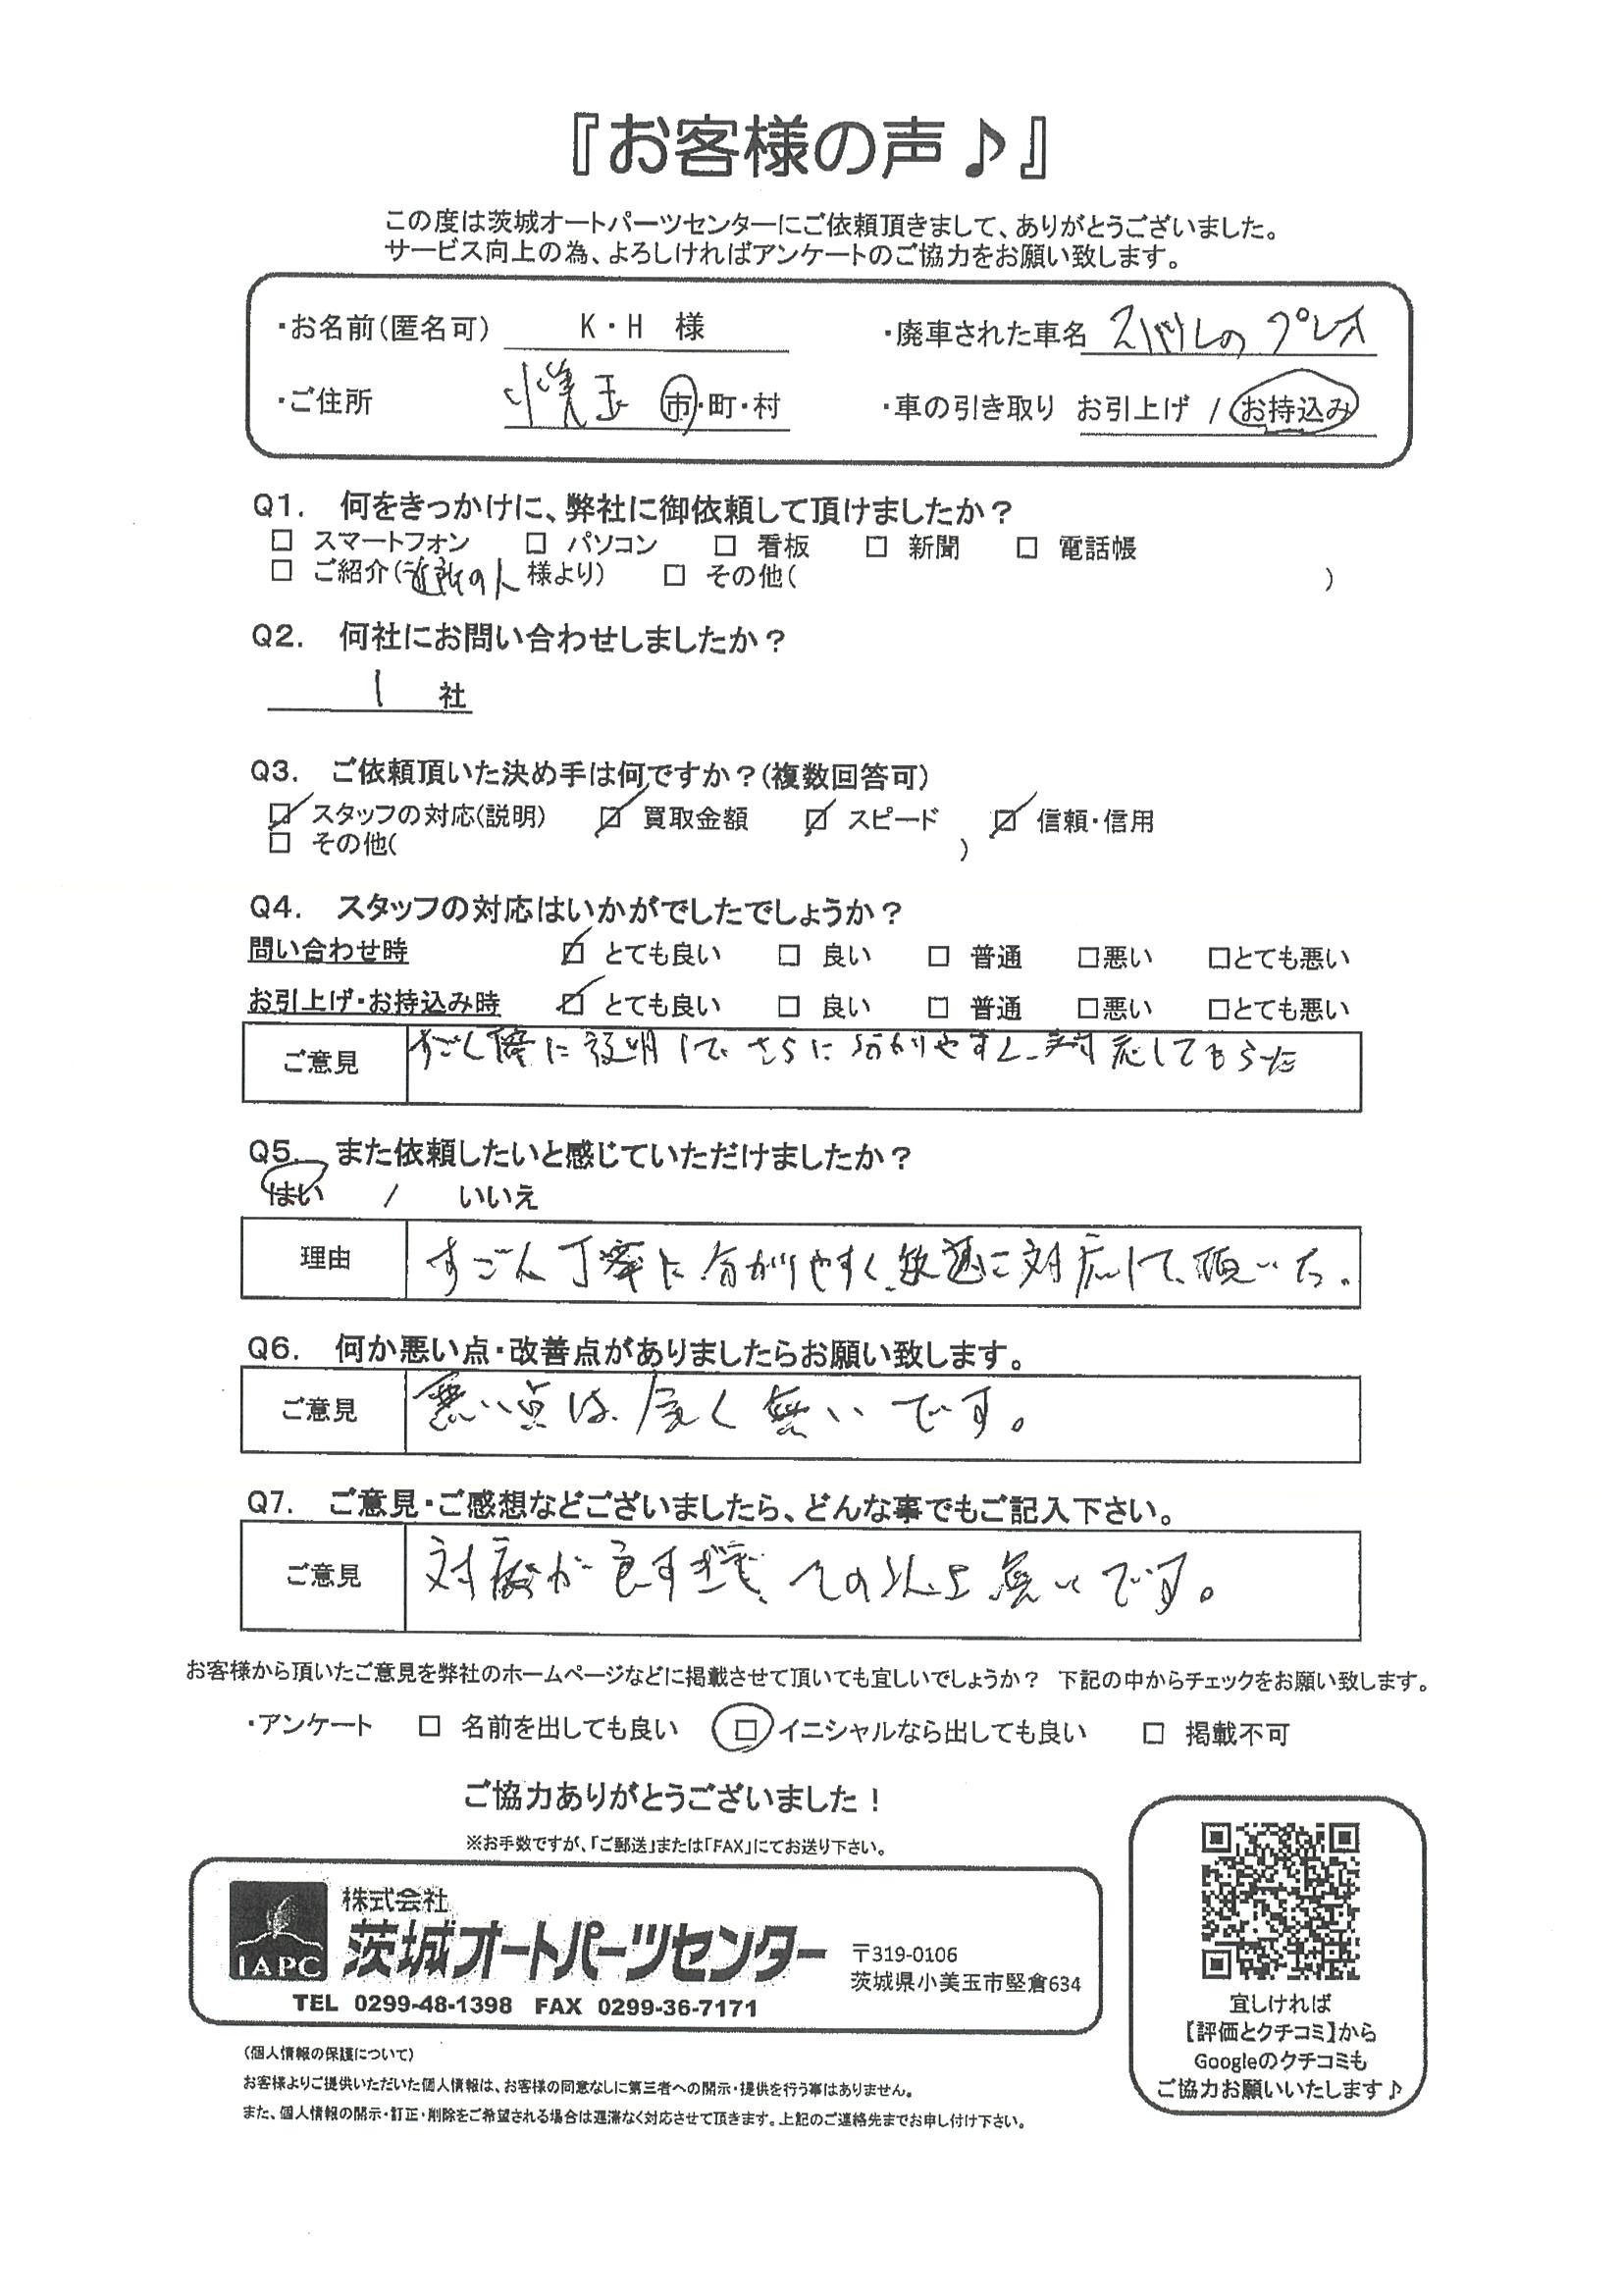 『お客様の声♪』
この度は茨城オートパーツセンターにご依頼頂きまして、ありがとうございました。
サービス向上の為、よろしければアンケートのご協力をお願い致します。
・お名前(匿名可) K・H 様 ・廃車された車名 スバルの プレオ
・ご住所 小美玉 市・町・村 ・車の引き取り お引上げ / お持込み
Q1. 何をきっかけに、弊社に御依頼して頂けましたか？
□ スマートフォン □ パソコン □ 看板 □ 新聞 □ 電話帳
□ ご紹介(近所の人 様より) □ その他( )
Q2. 何社にお問い合わせしましたか？
1 社
Q3. ご依頼頂いた決め手は何ですか？(複数回答可)
☑ スタッフの対応(説明) ☑ 買取金額 ☑ スピード ☑ 信頼・信用
□ その他( )
Q4. スタッフの対応はいかがでしたでしょうか？
問い合わせ時 ☑ とても良い □ 良い □ 普通 □悪い □とても悪い
お引上げ・お持込み時 ☑ とても良い □ 良い □ 普通 □悪い □とても悪い
ご意見 すごく に説明して、さらに分かりやすく、対応してもらった
Q5. また依頼したいと感じていただけましたか？
はい / いいえ
理由 すごく丁寧に分かりやすく、 に対応して、頂いた。
Q6. 何か悪い点・改善点がありましたらお願い致します。
ご意見 悪い点は、全く無いです。
Q7. ご意見・ご感想などございましたら、どんな事でもご記入下さい。
ご意見 対応が良すぎて、その以上無いです。
お客様から頂いたご意見を弊社のホームページなどに掲載させて頂いても宜しいでしょうか？ 下記の中からチェックをお願い致します。
・アンケート □ 名前を出しても良い □ イニシャルなら出しても良い □ 掲載不可
ご協力ありがとうございました！
※お手数ですが、「ご郵送」または「FAX」にてお送り下さい。
IAPC
株式会社
茨城オートパーツセンター
〒319-0106
茨城県小美玉市堅倉634
TEL 0299-48-1398 FAX 0299-36-7171
宜しければ
【評価とクチコミ】から
Googleのクチコミも
ご協力お願いいたします♪
(個人情報の保護について)
お客様よりご提供いただいた個人情報は、お客様の同意なしに第三者への開示・提供を行う事はありません。
また、個人情報の開示・訂正・削除をご希望される場合は遅滞なく対応させて頂きます。上記のご連絡先までお申し付け下さい。